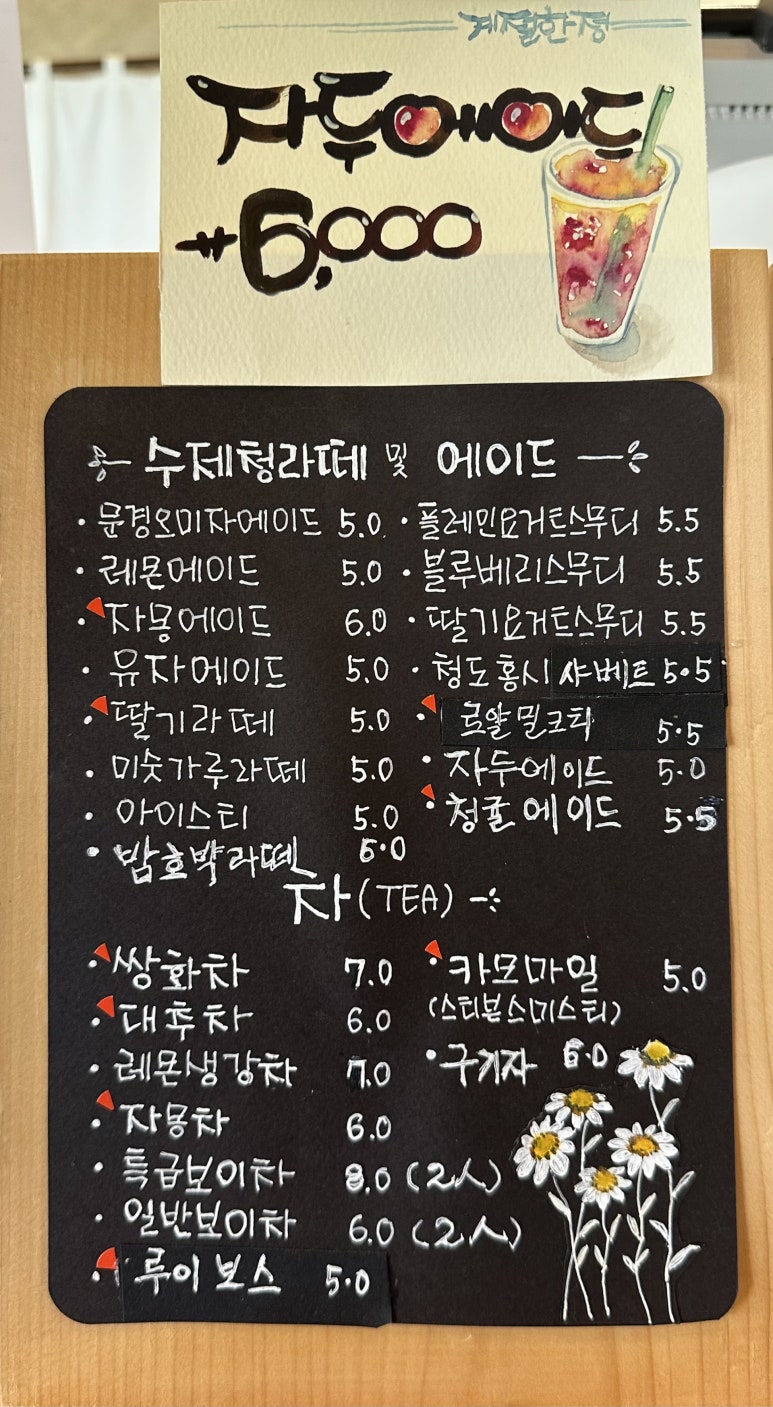 계절한정
자두에이드
₩6,000
수제청라떼 및 에이드
· 문경오미자에이드 5.0
· 레몬에이드 5.0
· 자몽에이드 6.0
· 유자에이드 5.0
· 딸기라떼 5.0
· 미숫가루라떼 5.0
· 아이스티 5.0
· 밤호박라떼 6.0
· 플레인요거트스무디 5.5
· 블루베리스무디 5.5
· 딸기요거트스무디 5.5
· 청도홍시 샤베트 5.5
· 로얄밀크티 5.5
· 자두에이드 5.0
· 청귤에이드 5.5
차 (TEA)
· 쌍화차 7.0
· 대추차 6.0
· 레몬생강차 7.0
· 자몽차 6.0
· 특급보이차 8.0 (2人)
· 일반보이차 6.0 (2人)
· 루이보스 5.0
· 카모마일 5.0
(스티븐스미스티)
· 구기자 6.0